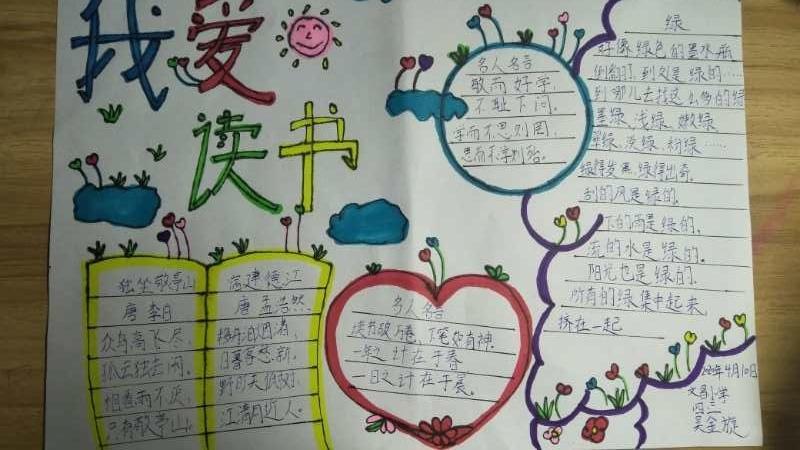 我爱
读书
独坐敬亭山
唐 李白
众鸟高飞尽,
孤云独去闲。
相看两不厌,
只有敬亭山。
宿建德江
唐 孟浩然
移舟泊烟渚,
日暮客愁新。
野旷天低树,
江清月近人。
名人名言
敏而好学,
不耻下问。
学而不思则罔,
思而不学则殆。
名人名言
读书破万卷,下笔如有神。
一年之计在于春
一日之计在于晨。
绿
好像绿色的墨水瓶
倒翻了,到处是绿的……
到哪儿去找这么多的绿
墨绿、浅绿、嫩绿、
翠绿、淡绿、粉绿……
绿得发黑、绿得出奇。
刮的风是绿的,
下的雨是绿的,
流的水是绿的,
阳光也是绿的,
所有的绿集中起来,
挤在一起
年4月10日
文昌小学
吴金旋